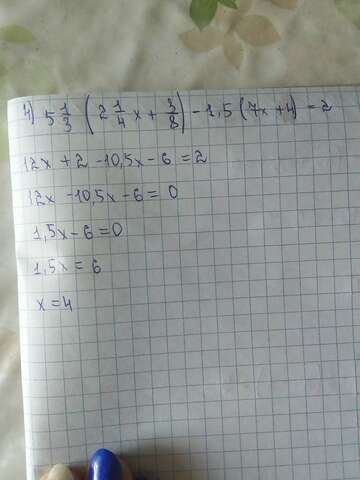 4) 5 1/3 (2 1/4 x + 3/8) - 1,5 (7x + 4) = 2
12x + 2 - 10,5x - 6 = 2
12x - 10,5x - 6 = 0
1,5x - 6 = 0
1,5x = 6
x = 4